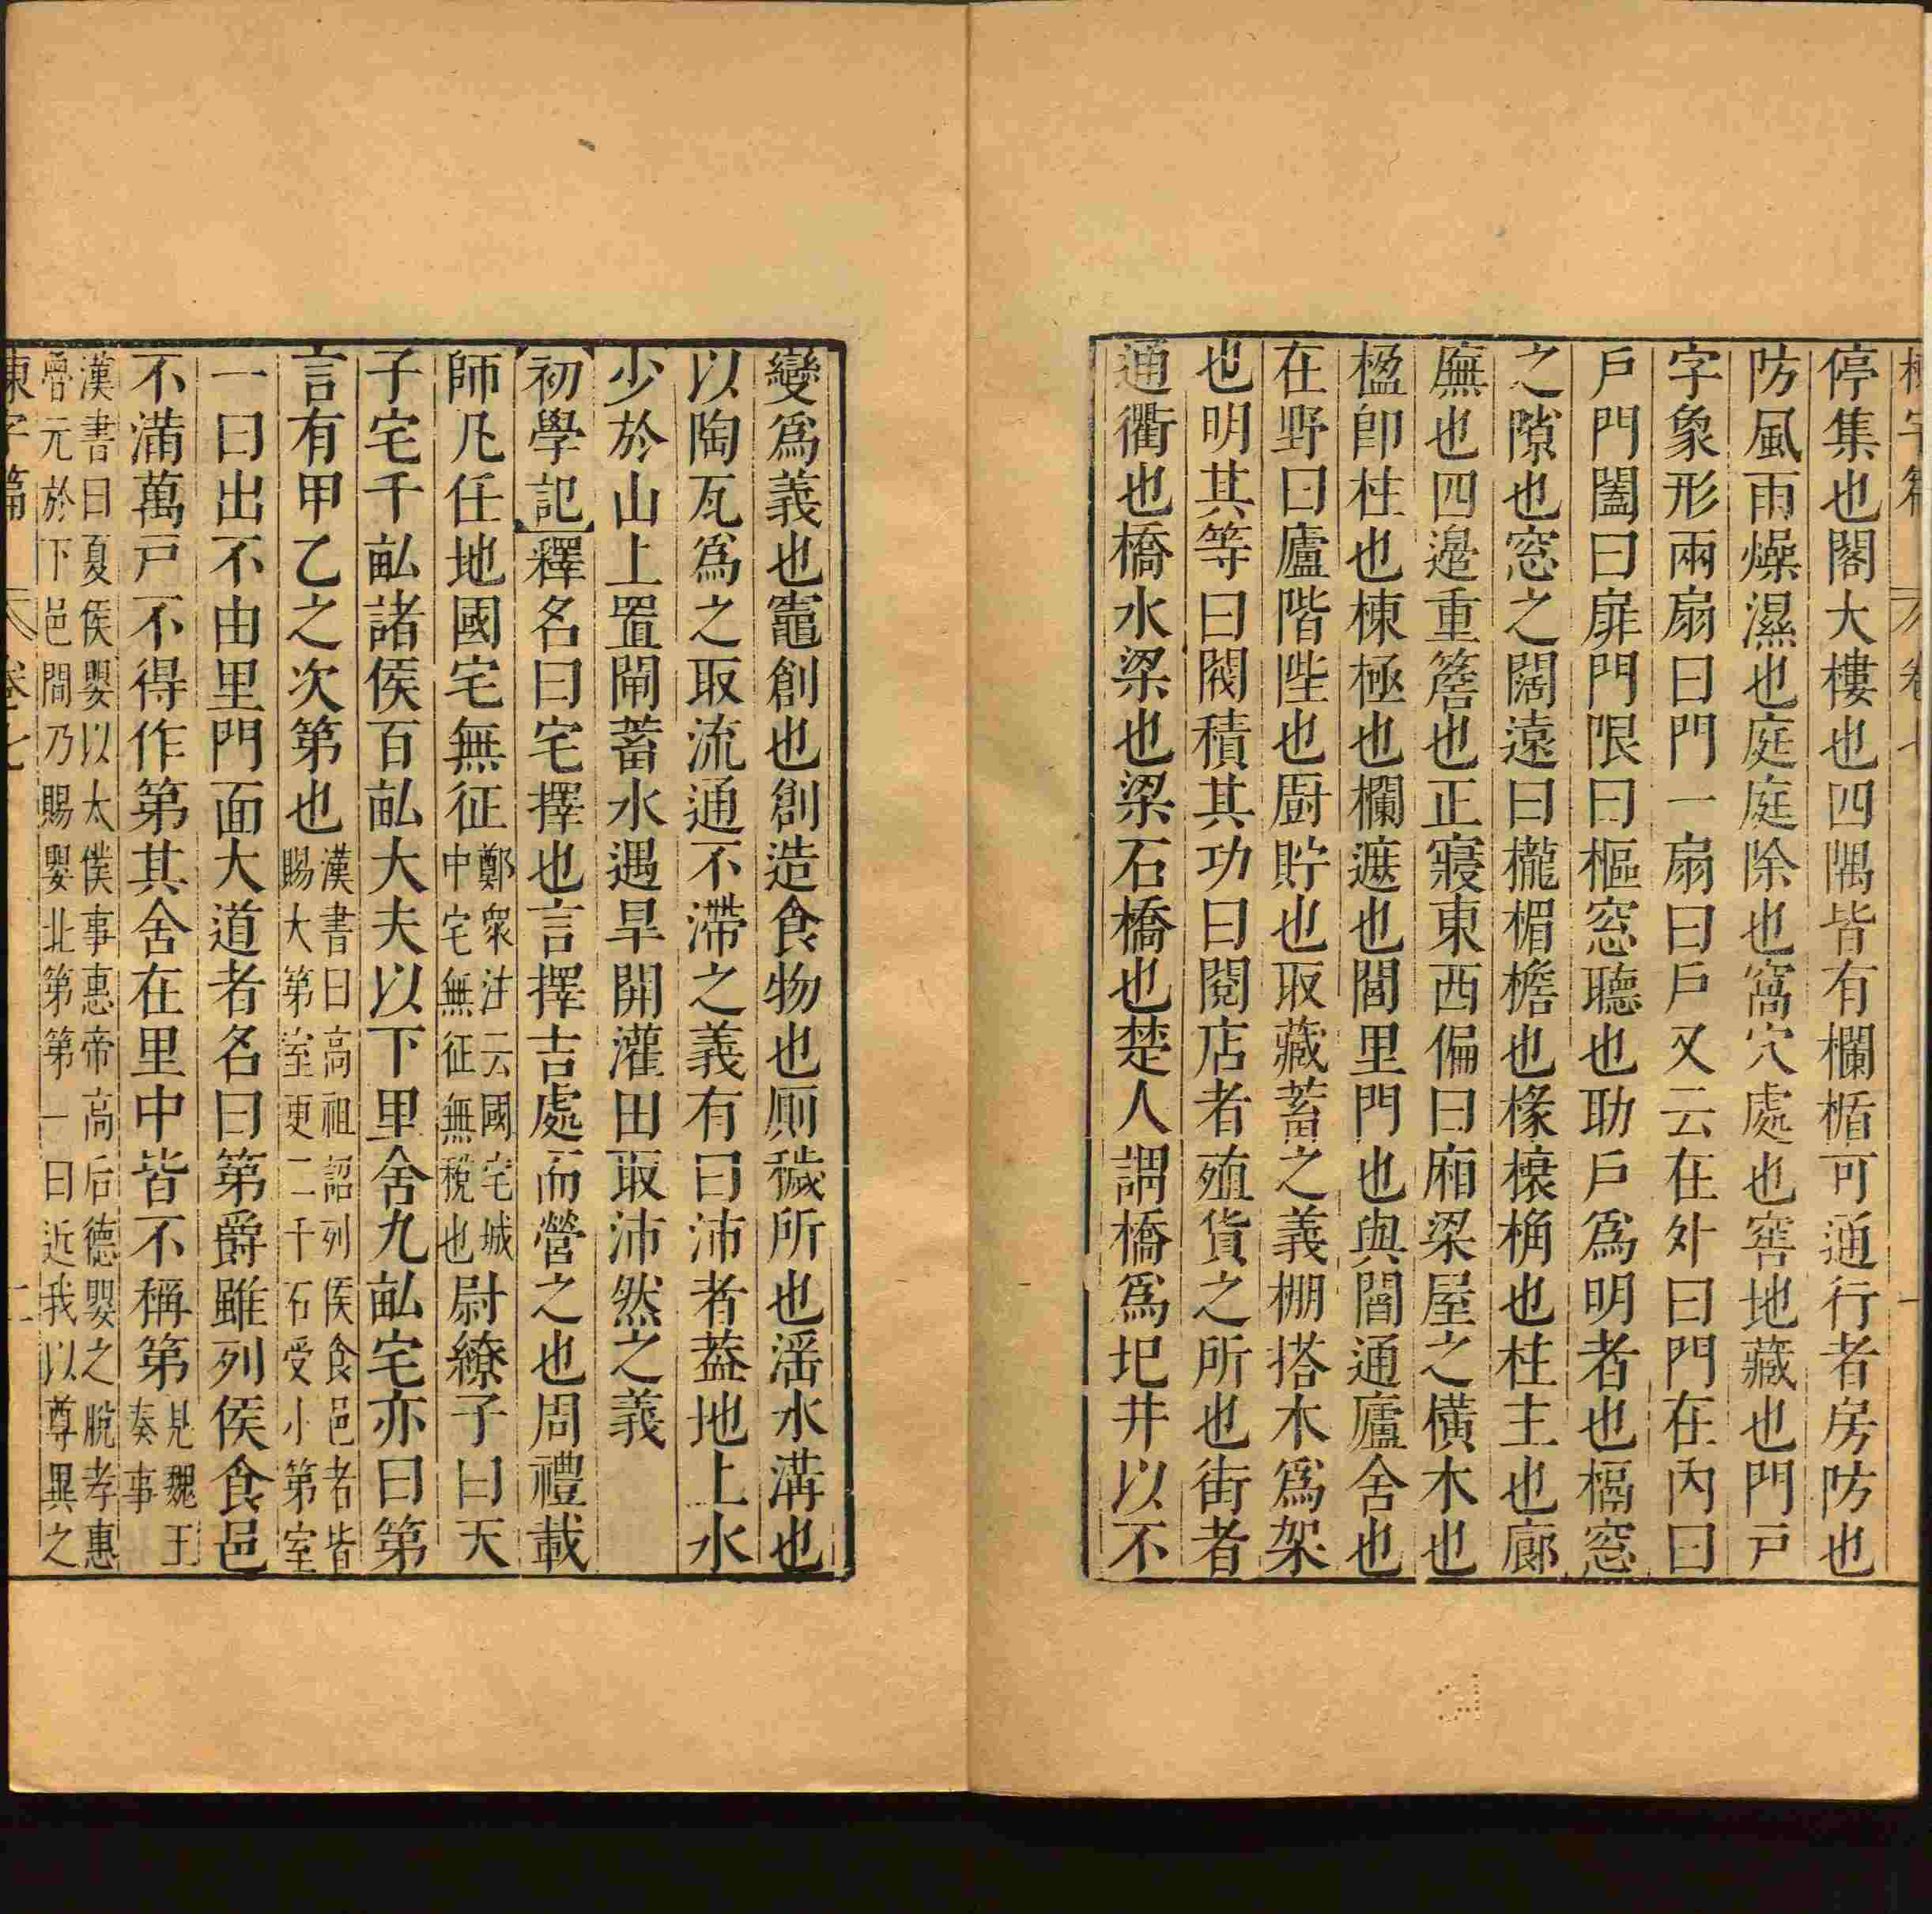 停集也閣大樓也四隅皆有欄楯可通行者房防也
防風雨燥濕也庭庭除也窩穴處也窖地藏也門戶
字象形兩扇曰門一扇曰戶又云在外曰門在內曰
戶門闔曰扉門限曰樞窓聽也助戶爲明者也槅窓
之隙也窓之闊遠曰櫳楣檐也椽榱桷也柱主也廊
廡也四邉重簷也正寢東西偏曰廂梁屋之橫木也
楹卽柱也棟極也欄遮也閭里門也與閻通廬舍也
在野曰廬階陛也厨貯也取藏蓄之義棚搭木爲架
也明其等曰閥積其功曰閱店者殖貨之所也街者
通衢也橋水梁也梁石橋也楚人謂橋爲圯井以不
變爲義也竈創也創造食物也厠穢所也滛水溝也
以陶瓦爲之取流通不滯之義有曰沛者葢地上水
少於山上置閘蓄水遇旱開灌田取沛然之義
初學記釋名曰宅擇也言擇吉處而營之也周禮載
師凡任地國宅無征鄭衆注云國宅城中宅無征無稅也尉繚子曰天
子宅千畝諸侯百畝大夫以下里舍九畝宅亦曰第
言有甲乙之次第也漢書曰高祖詔列侯食邑者皆賜大第室吏二千石受小第室
一曰出不由里門面大道者名曰第爵雖列侯食邑
不滿萬戶不得作第其舍在里中皆不稱第見魏王奏事
漢書曰夏侯嬰以太僕事惠帝高后德嬰之脫孝惠
魯元於下邑間乃賜嬰北第第一曰近我以尊異之
卷七
二